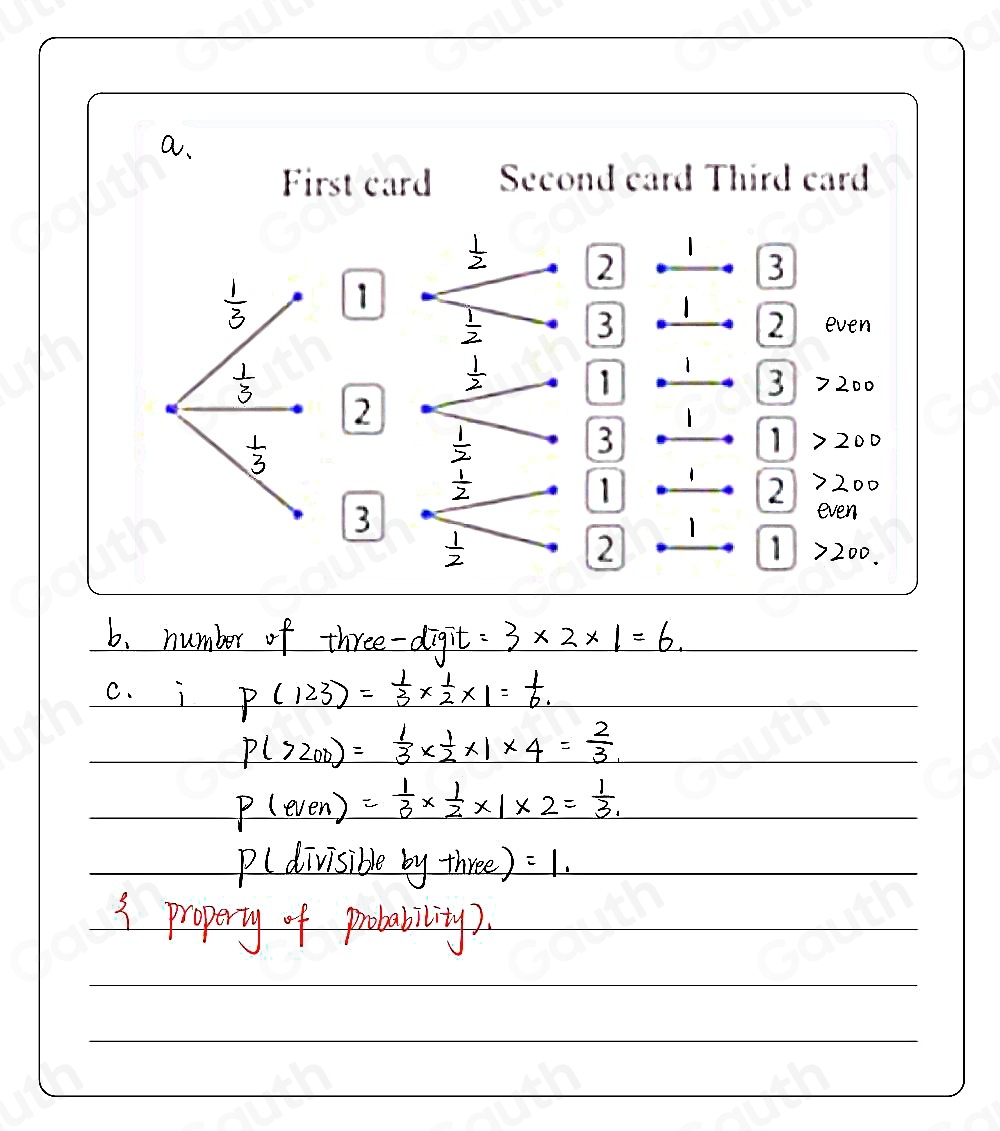 a.
First card Second card Third card
1/3 1 1/2 2 1 3
1/2 3 1 2 even
1/3 2 1/2 1 1 3 >200
1/2 3 1 1 >200
1/3 3 1/2 1 1 2 >200 even
1/2 2 1 1 >200.
b. number of three-digit = 3 × 2 × 1 = 6.
c. i P(123) = 1/3 × 1/2 × 1 = 1/6.
P(>200) = 1/3 × 1/2 × 1 × 4 = 2/3.
P(even) = 1/3 × 1/2 × 1 × 2 = 1/3.
P(divisible by three) = 1.
{ property of probability).
Gauth